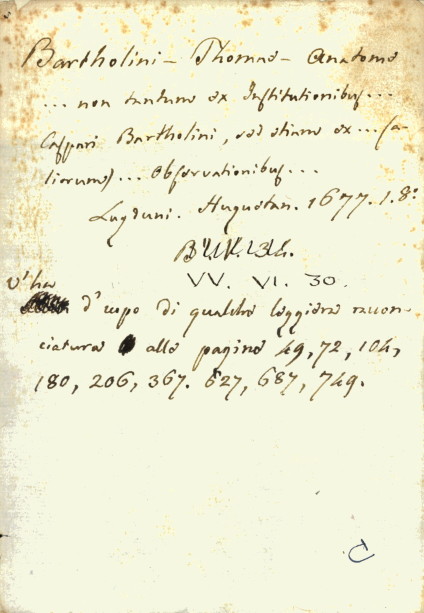 Bartholini - Thomae - Anatome
... non tantum ex Institutionibus ...
Caspari Bartholini, sed etiam ex ... (a-
liorum) ... Observationibus ...
Lugduni. Huguetan. 1677. 1. 8º
VV. VI. 30.
V'ha
d'uopo di qualche leggiera racon-
ciatura alle pagine 49, 72, 104,
180, 206, 367. 627, 687, 749.
C